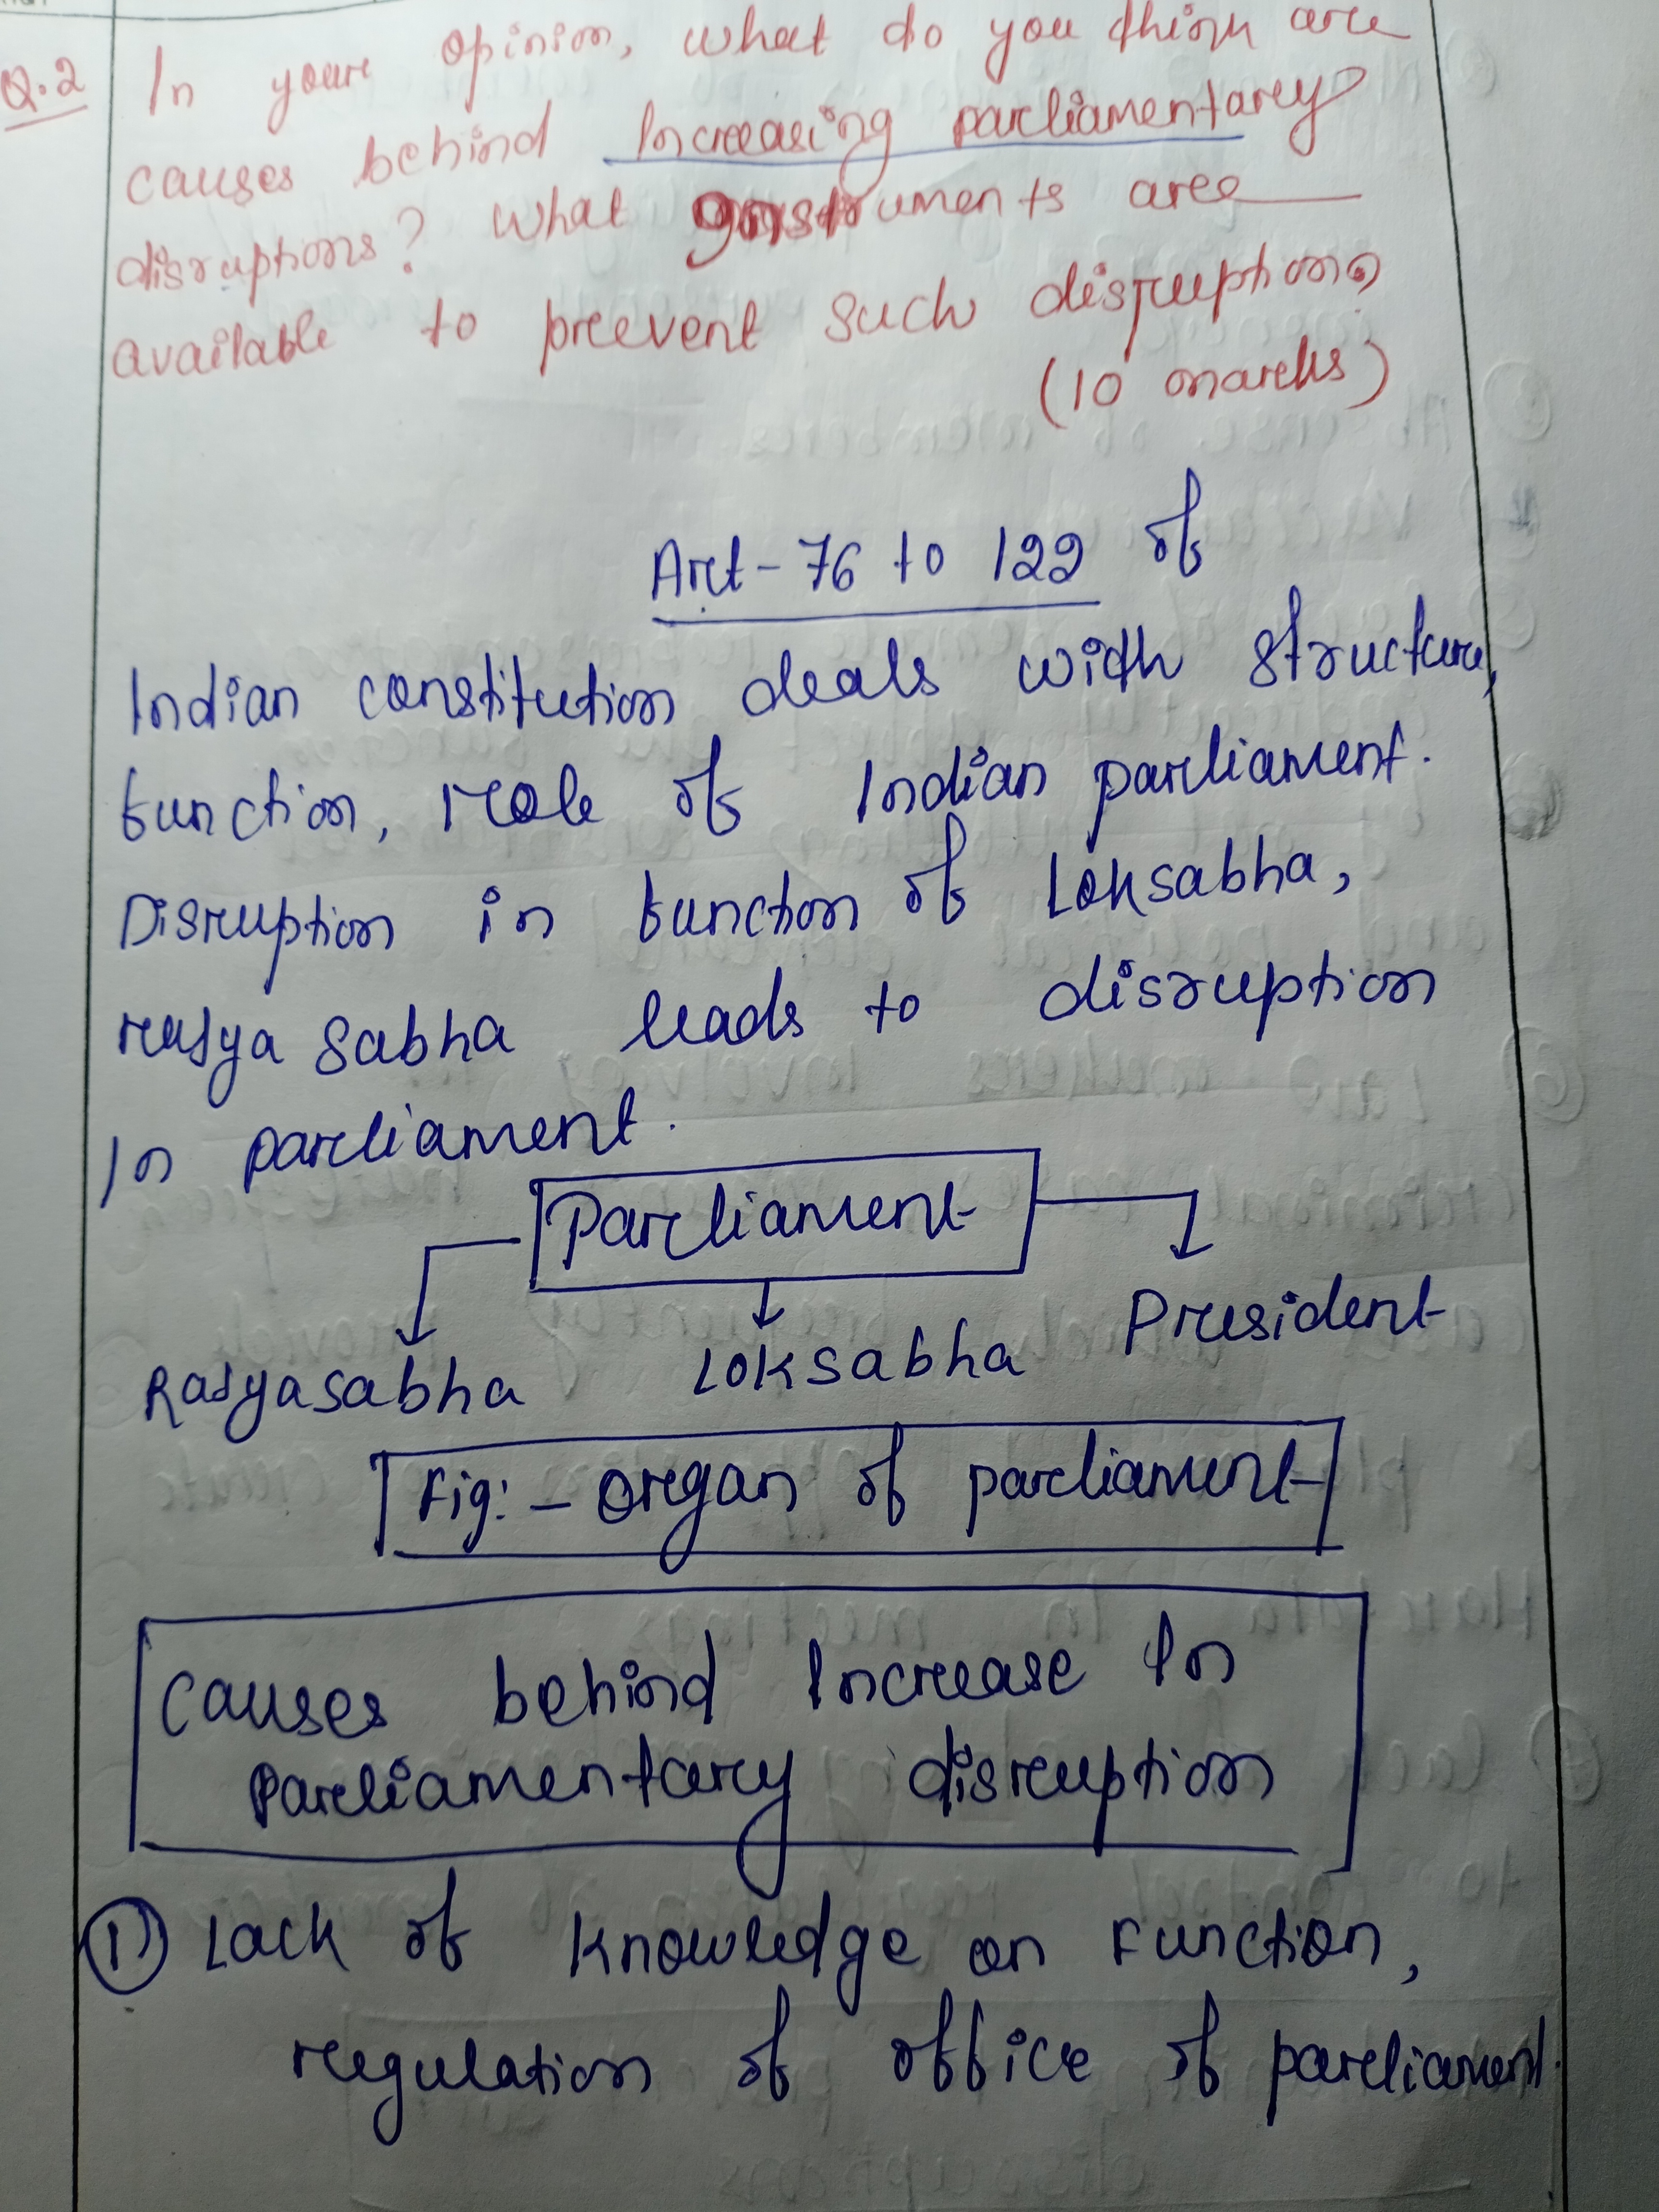 Q.2 In your opinion, what do you think are
causes behind Increasing parliamentary
disruptions? What Instruments are
available to prevent such disruptions?
(10 marks)
Art - 76 to 122 of
Indian constitution deals with structure,
function, role of Indian parliament.
Disruption in function of Loksabha,
rajya sabha leads to disruption
In parliament.
Parliament
Rajyasabha Loksabha President
Fig: - organ of parliament
Causes behind Increase In
Parliamentary disruption
1) Lack of knowledge on Function,
regulation of office of parliament.